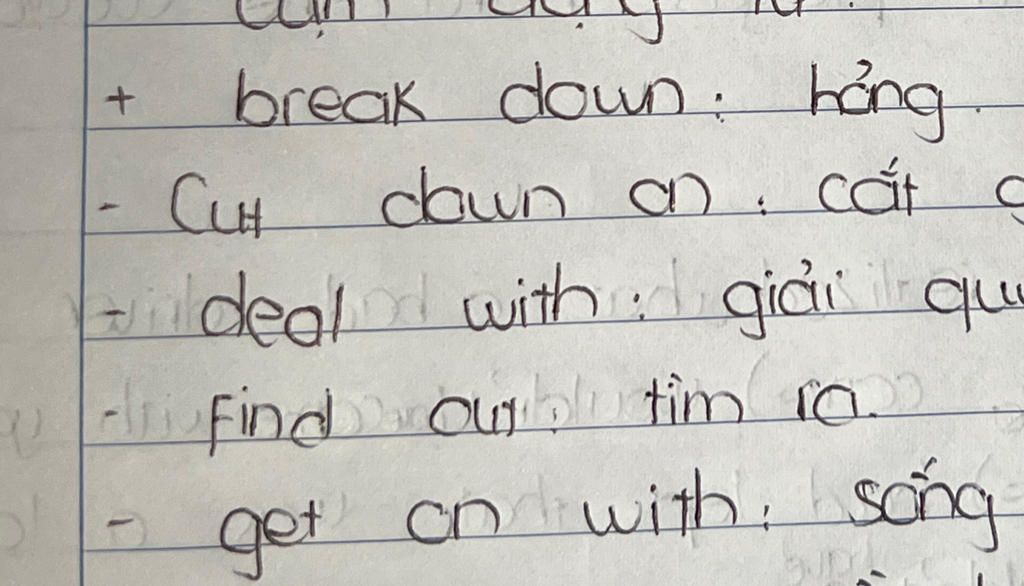 + break down : hỏng.
- Cut down on : cắt
- deal with : giải
- Find out : tìm ra.
- get on with : sống